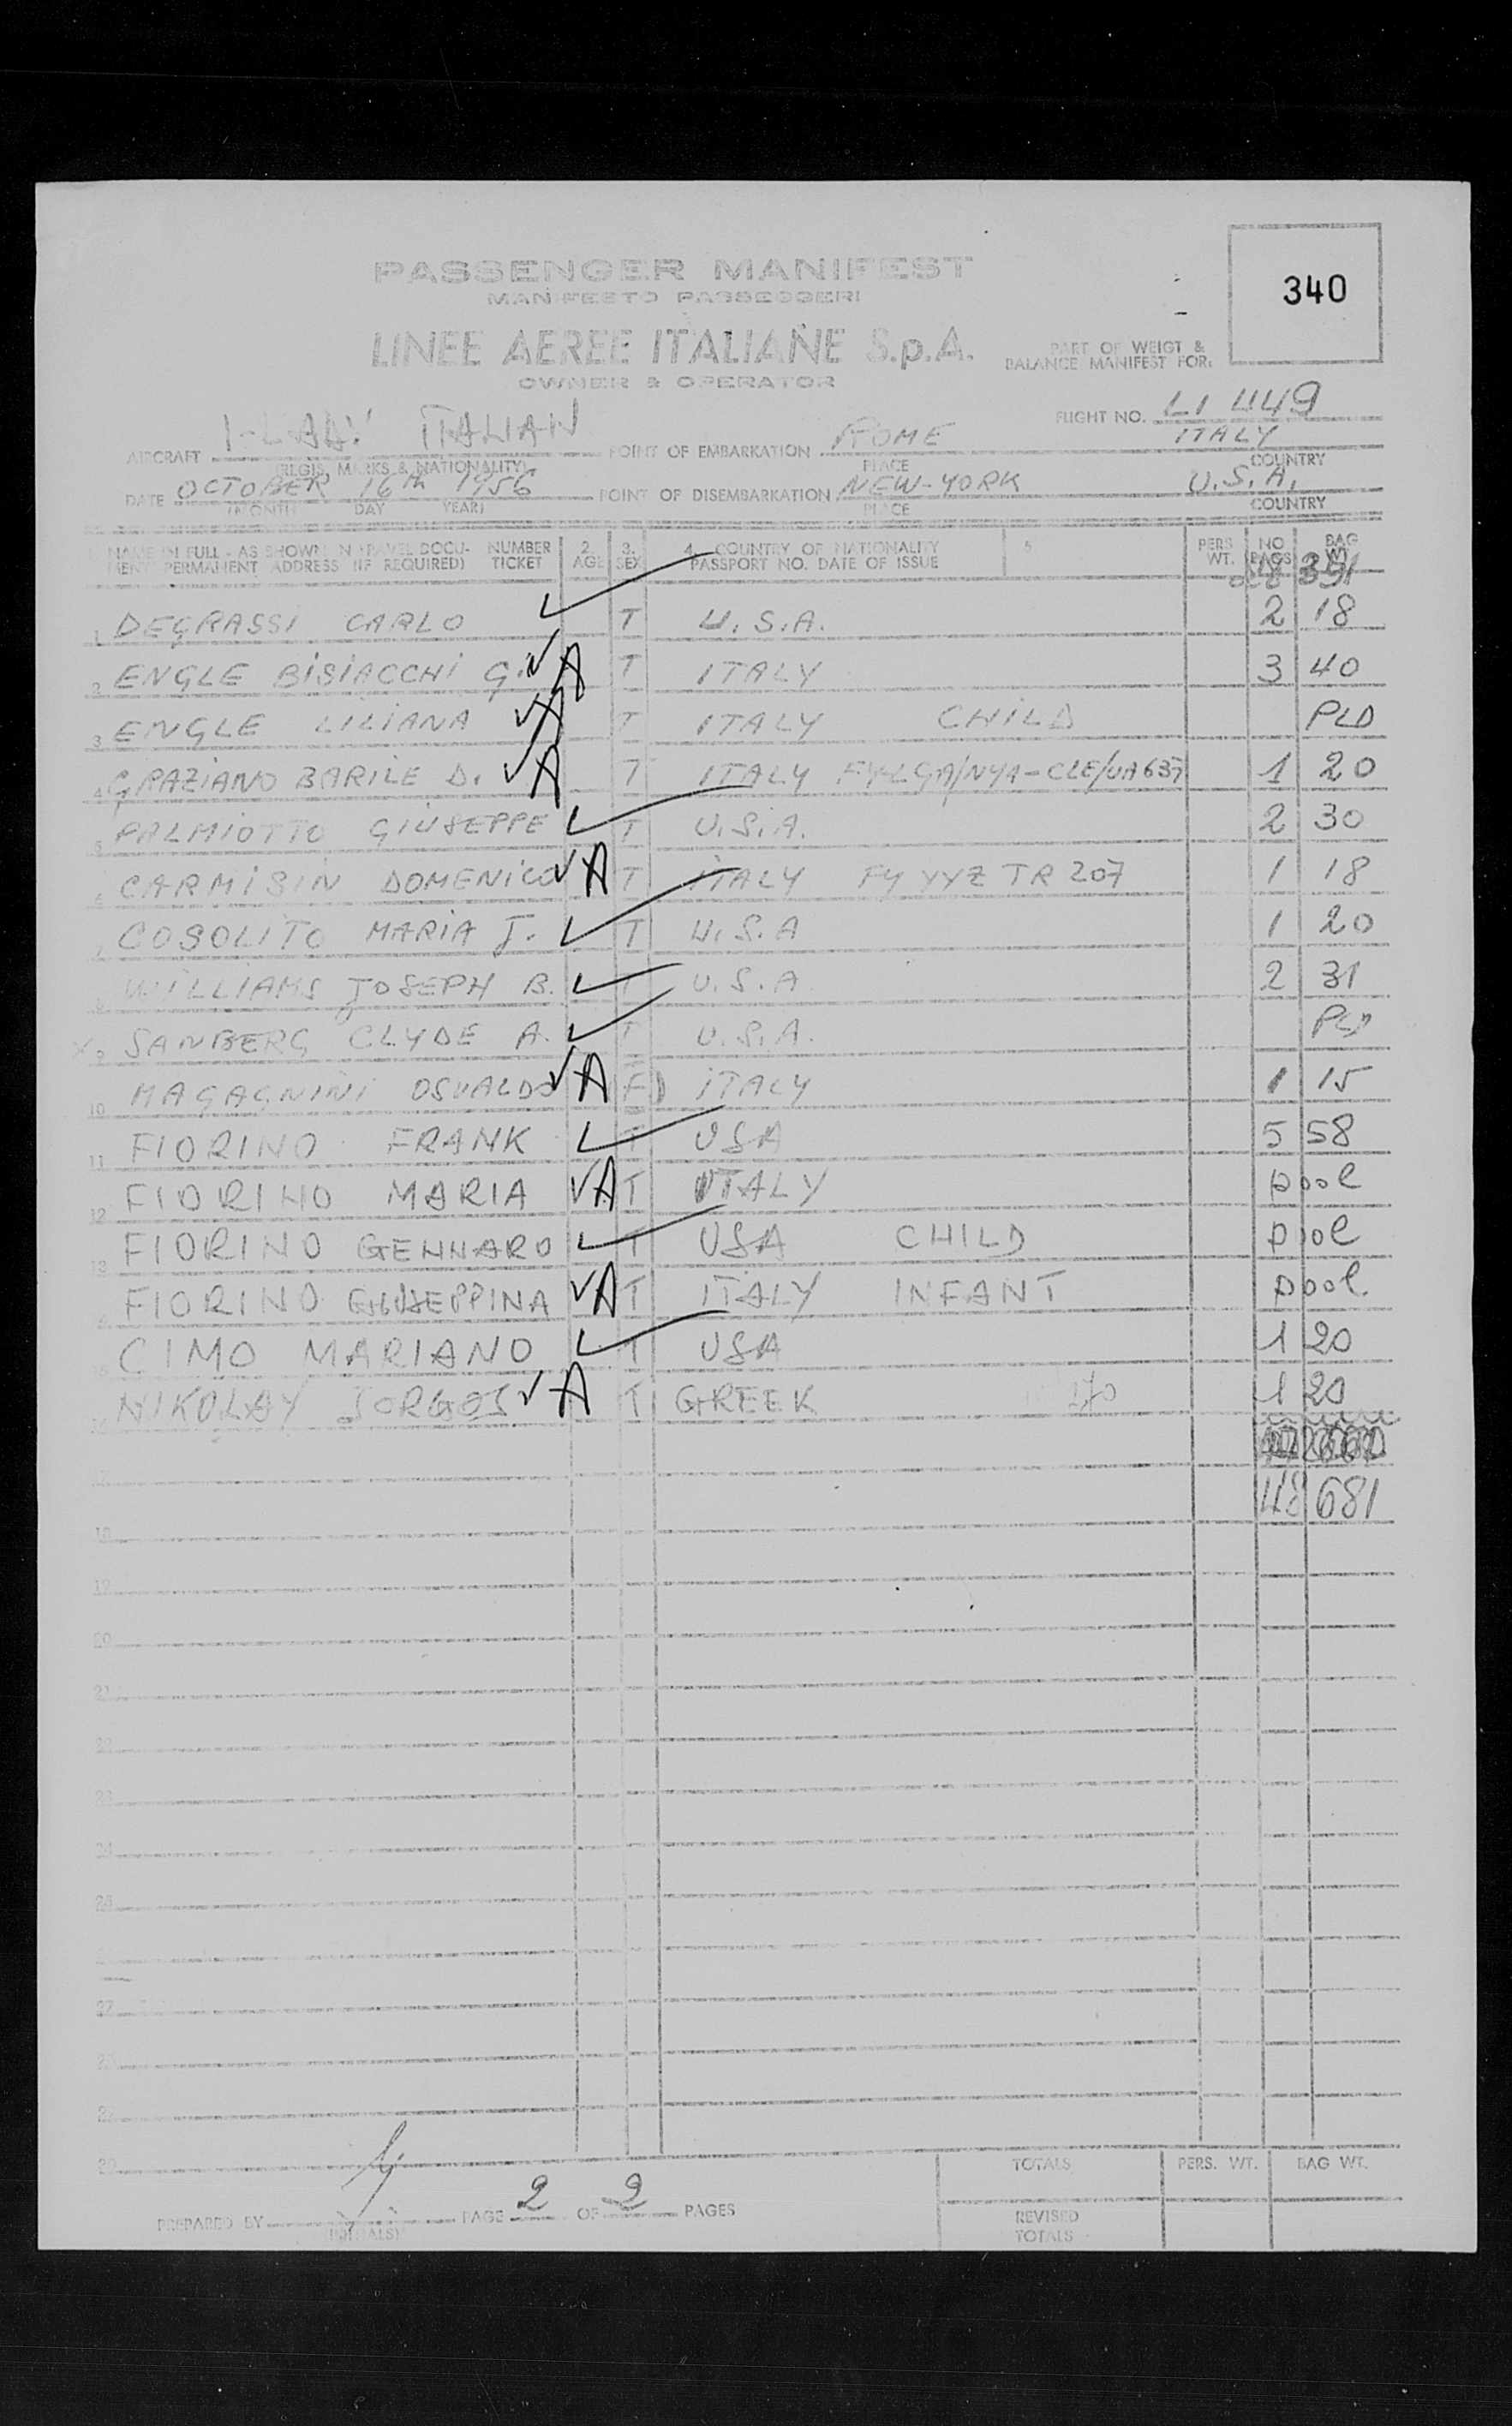 340
PASSENGER MANIFEST
MANIFESTO PASSEGGERI
LINEE AEREE ITALIANE S.p.A.
OWNER & OPERATOR
PART OF WEIGT &
BALANCE MANIFEST FOR:
FLIGHT NO. LI 449
AIRCRAFT ITALIAN POINT OF EMBARKATION ROME ITALY
(REGIS. MARKS & NATIONALITY) PLACE COUNTRY
DATE OCTOBER 16th 1956 POINT OF DISEMBARKATION NEW-YORK U.S.A.
(MONTH DAY YEAR) PLACE COUNTRY
NAME IN FULL - AS SHOWN IN TRAVEL DOCU- NUMBER 2. 3. 4. COUNTRY OF NATIONALITY 5 PERS. NO BAG
MENT PERMANENT ADDRESS (IF REQUIRED) TICKET AGE SEX PASSPORT NO. DATE OF ISSUE WT. BAGS WT.
391
1 DEGRASSI CARLO T U.S.A. 2 18
2 ENGLE BISIACCHI G. A T ITALY 3 40
3 ENGLE LILIANA A T ITALY CHILD PLD
4 GRAZIANO BARILE D. A T ITALY FY-LGA/NYA-CLE/UA637 1 20
5 PALMIOTTO GIUSEPPE T U.S.A. 2 30
6 CARMISIN DOMENICO A T ITALY FY YYZ TR 207 1 18
7 COSOLITO MARIA J. T U.S.A 1 20
8 WILLIAMS JOSEPH B. T U.S.A. 2 31
x 9 SANBERG CLYDE A. T U.S.A. PLD
10 MAGAGNINI OSVALDO A F ITALY 1 15
11 FIORINO FRANK T USA 5 58
12 FIORINO MARIA A T ITALY pool
13 FIORINO GENNARO T USA CHILD pool
FIORINO GIUSEPPINA A T ITALY INFANT pool
15 CIMO MARIANO T USA 1 20
16 NIKOLAY JORGOS A T GREEK 1 20
48 681
18
19
20
21
22
23
24
25
27
29
30
TOTALS PERS. WT. BAG WT.
PREPARED BY PAGE 2 OF 2 PAGES
(INITIALS)
REVISED
TOTALS